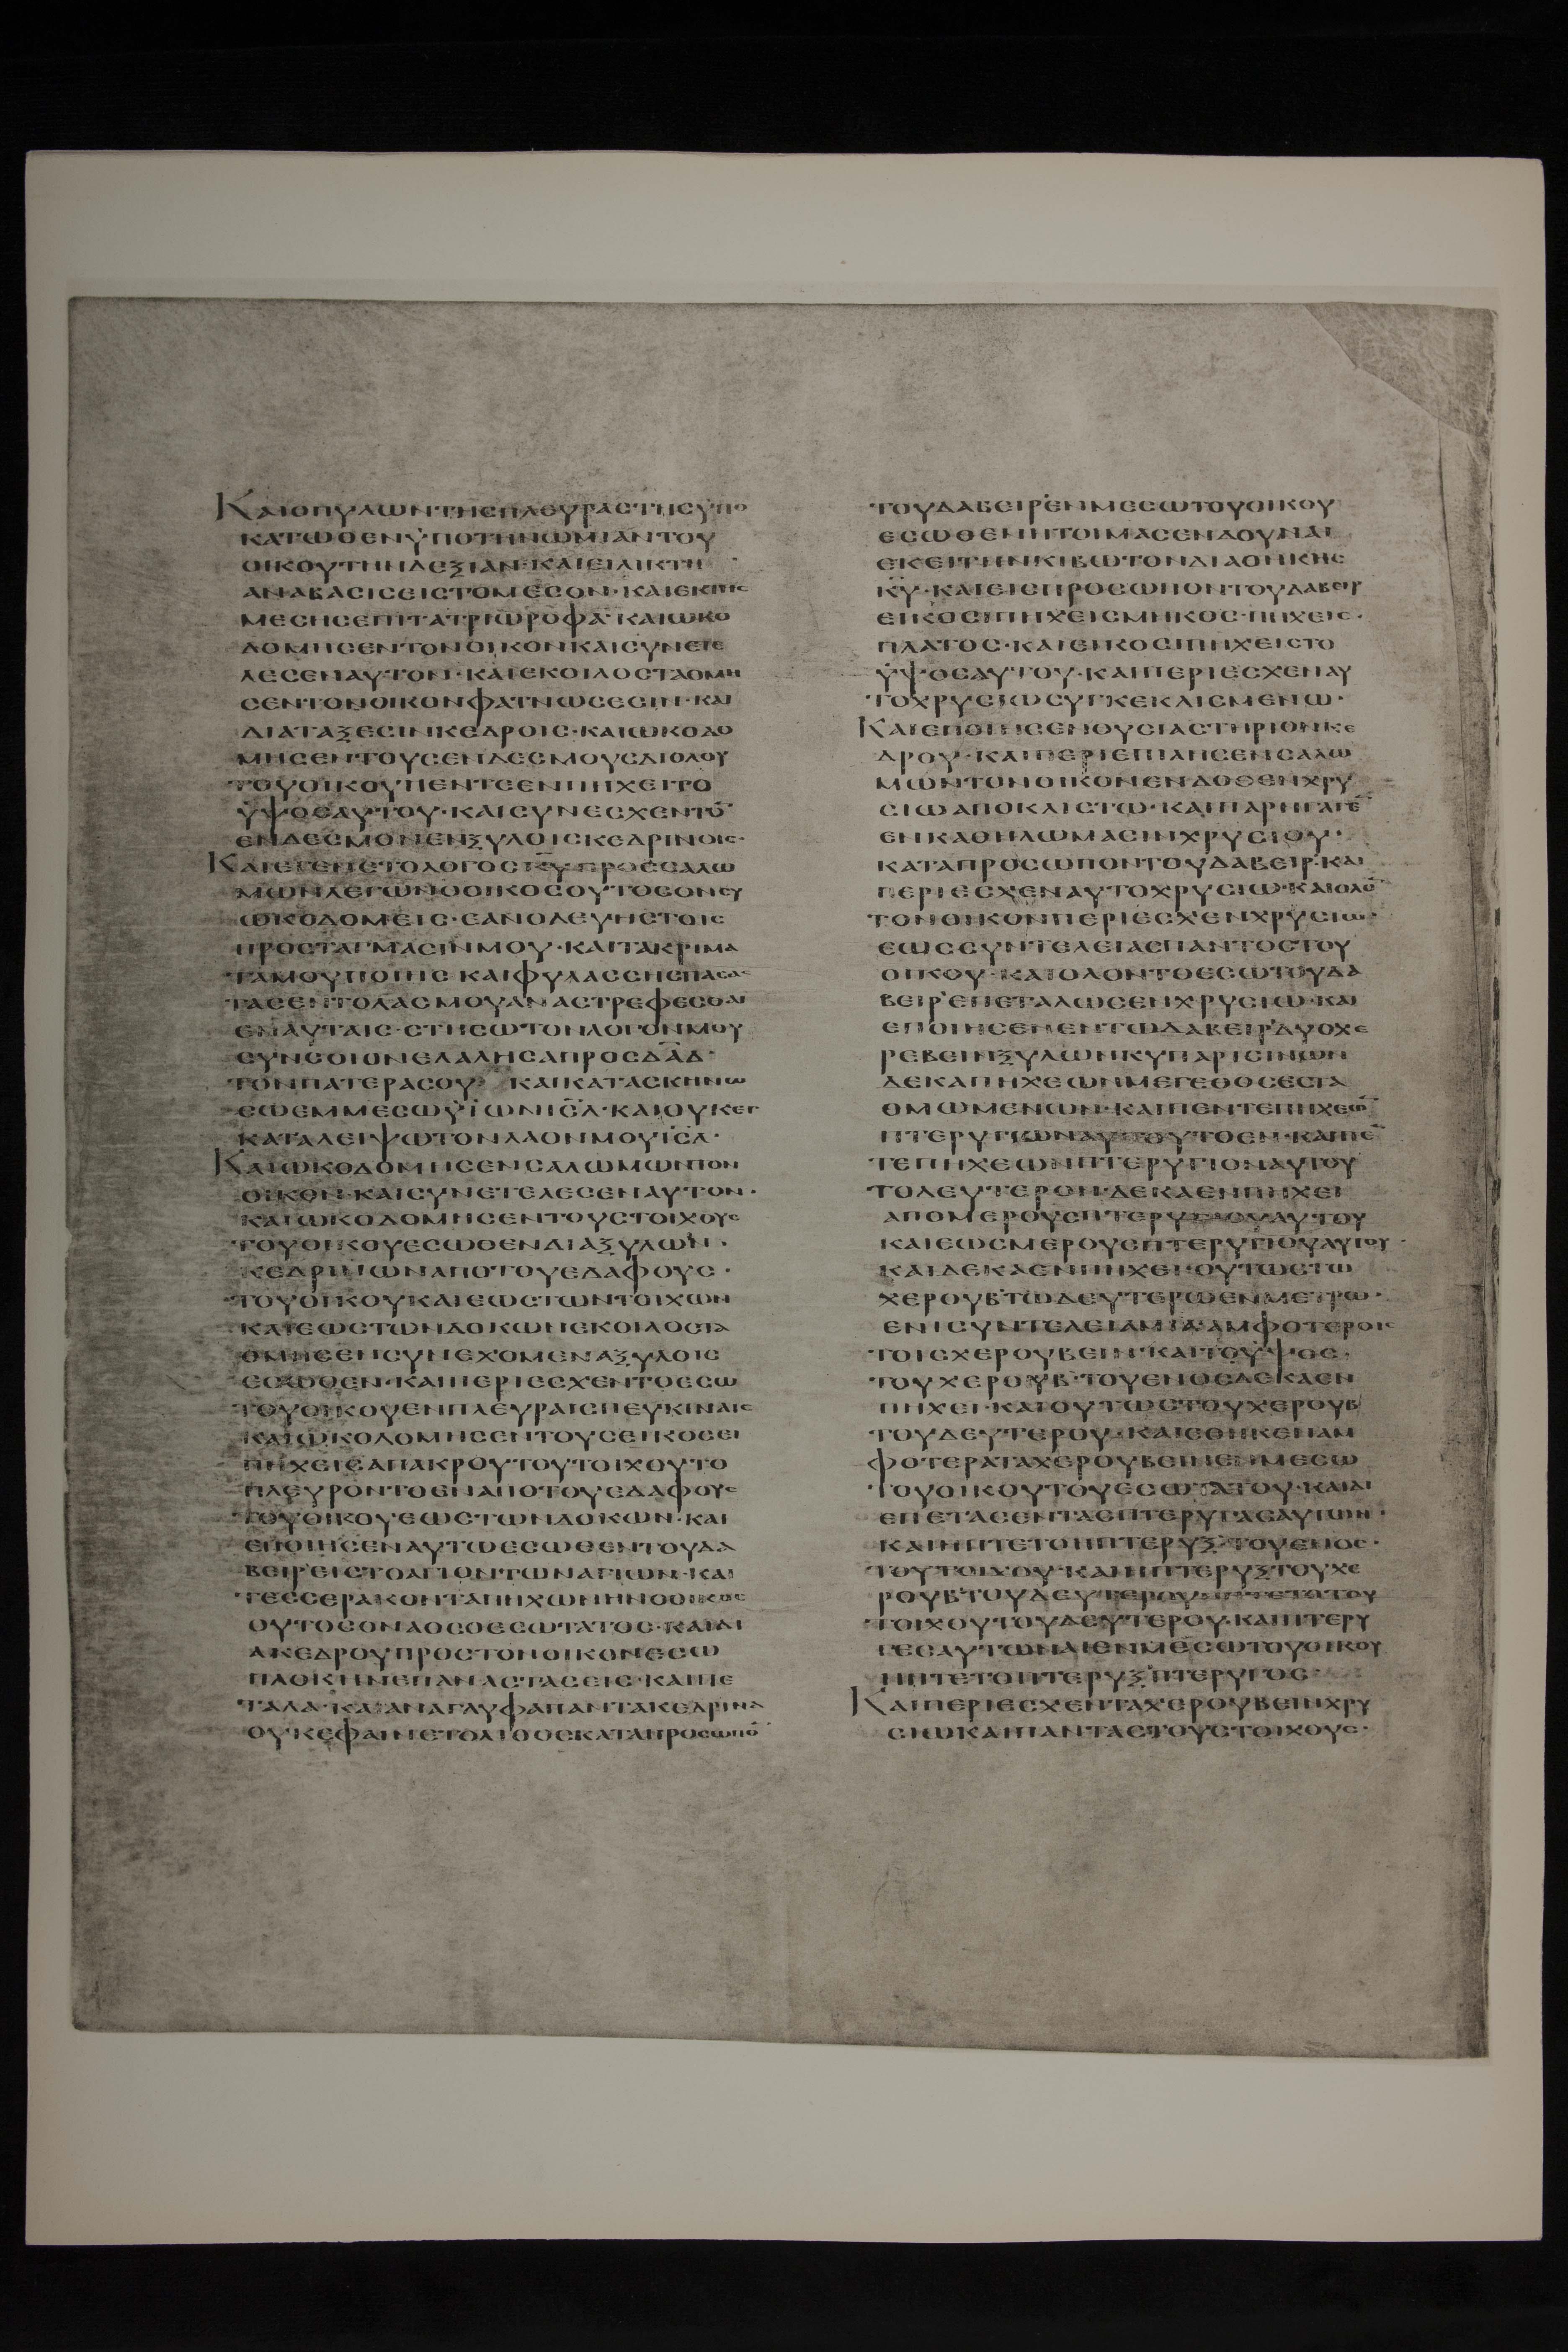 ΚΑΙΟΠΥΛΩΝΤΗCΠΛΕΥΡΑCΤΗCΫΠΟ
ΚΑΤΩΘΕΝΫΠΟΤΗΝΩΜΙΑΝΤΟΥ
ΟΙΚΟΥΤΗΝΔΕΞΙΑΝ·ΚΑΙΕΙΛΙΚΤΗ
ΑΝΑΒΑCΙCΕΙCΤΟΜΕCΟΝ·ΚΑΙΕΚΤΗC
ΜΕCΗCΕΠΙΤΑΤΡΙΩΡΟΦΑ·ΚΑΙΩΚΟ
ΔΟΜΗCΕΝΤΟΝΟΙΚΟΝΚΑΙCΥΝΕΤΕ
ΛΕCΕΝΑΥΤΟΝ·ΚΑΙΕΚΟΙΛΟCΤΑΘΜΗ
CΕΝΤΟΝΟΙΚΟΝΦΑΤΝΩCΕCΙΝ·ΚΑΙ
ΔΙΑΤΑΞΕCΙΝΚΕΔΡΟΙC·ΚΑΙΩΚΟΔΟ
ΜΗCΕΝΤΟΥCΕΝΔΕCΜΟΥCΔΙΟΛΟΥ
ΤΟΥΟΙΚΟΥΠΕΝΤΕΕΝΠΗΧΕΙΤΟ
ΫΨΟCΑΥΤΟΥ·ΚΑΙCΥΝΕCΧΕΝΤΟ̅
ΕΝΔΕCΜΟΝΕΝΞΥΛΟΙCΚΕΔΡΙΝΟΙC·
ΚΑΙΕΓΕΝΕΤΟΛΟΓΟCΚ̅Υ̅ΠΡΟCCΑΛΩ
ΜΩΝΛΕΓΩΝΟΟΙΚΟCΟΥΤΟCΟΝCΥ
ΩΚΟΔΟΜΕΙC·ΕΑΝΟΔΕΥΗCΤΟΙC
ΠΡΟCΤΑΓΜΑCΙΝΜΟΥ·ΚΑΙΤΑΚΡΙΜΑ
ΤΑΜΟΥΠΟΙΗC·ΚΑΙΦΥΛΑCCΗCΠΑCΑC
ΤΑCΕΝΤΟΛΑCΜΟΥΑΝΑCΤΡΕΦΕCΘΑΙ
ΕΝΑΥΤΑΙC·CΤΗCΩΤΟΝΛΟΓΟΝΜΟΥ
CΥΝCΟΙΟΝΕΛΑΛΗCΑΠΡΟCΔ̅Α̅Δ̅·
ΤΟΝΠΑΤΕΡΑCΟΥ ΚΑΙΚΑΤΑCΚΗΝΩ
CΩΕΜΜΕCΩΫΪΩΝΙ̅C̅Λ̅·ΚΑΙΟΥΚΕΓ
ΚΑΤΑΛΕΙΨΩΤΟΝΛΑΟΝΜΟΥΙ̅C̅Λ̅·
ΚΑΙΩΚΟΔΟΜΗCΕΝCΑΛΩΜΩΝΤΟΝ
ΟΙΚΟΝ·ΚΑΙCΥΝΕΤΕΛΕCΕΝΑΥΤΟΝ·
ΚΑΙΩΚΟΔΟΜΗCΕΝΤΟΥCΤΟΙΧΟΥC
ΤΟΥΟΙΚΟΥΕCΩΘΕΝΔΙΑΞΥΛΩΝ·
ΚΕΔΡΙΝΩΝΑΠΟΤΟΥΕΔΑΦΟΥC·
ΤΟΥΟΙΚΟΥΚΑΙΕΩCΤΩΝΤΟΙΧΩΝ
ΚΑΙΕΩCΤΩΝΔΟΚΩΝΕΚΟΙΛΟCΤΑ
ΘΜΗCΕΝCΥΝΕΧΟΜΕΝΑΞΥΛΟΙC
ΕCΩΘΕΝ·ΚΑΙΠΕΡΙΕCΧΕΝΤΟΕCΩ
ΤΟΥΟΙΚΟΥΕΝΠΛΕΥΡΑΙCΠΕΥΚΙΝΑΙC
ΚΑΙΩΚΟΔΟΜΗCΕΝΤΟΥCΕΙΚΟCΕΙ
ΠΗΧΕΙCΑΠΑΚΡΟΥΤΟΥΤΟΙΧΟΥΤΟ
ΠΛΕΥΡΟΝΤΟΕΝΑΠΟΤΟΥΕΔΑΦΟΥC
ΤΟΥΟΙΚΟΥΕΩCΤΩΝΔΟΚΩΝ·ΚΑΙ
ΕΠΟΙΗCΕΝΑΥΤΩΕCΩΘΕΝΤΟΥΔΑ
ΒΕΙΡ'ΕΙCΤΟΑΓΙΟΝΤΩΝΑΓΙΩΝ·ΚΑΙ
ΤΕCCΕΡΑΚΟΝΤΑΠΗΧΩΝΗΝΟΟΙΚΟC
ΟΥΤΟCΟΝΑΟCΟΕCΩΤΑΤΟC·ΚΑΙΔΙ
ΑΚΕΔΡΟΥΠΡΟCΤΟΝΟΙΚΟΝΕCΩ
ΠΛΟΚΗΝΕΠΑΝΑCΤΑCΕΙC·ΚΑΙΠΕ
ΤΑΛΑ·ΚΑΙΑΝΑΓΛΥΦΑΠΑΝΤΑΚΕΔΡΙΝΑ
ΟΥΚΕΦΑΙΝΕΤΟΛΙΘΟCΚΑΤΑΠΡΟCΩΠΟ̅
ΤΟΥΔΑΒΕΙΡ'ΕΝΜΕCΩΤΟΥΟΙΚΟΥ
ΕCΩΘΕΝΗΤΟΙΜΑCΕΝΔΟΥΝΑΙ
ΕΚΕΙΤΗΝΚΙΒΩΤΟΝΔΙΑΘΗΚΗC
Κ̅Υ̅·ΚΑΙΕΙCΠΡΟCΩΠΟΝΤΟΥΔΑΒΕΙΡ
ΕΙΚΟCΙΠΗΧΕΙCΜΗΚΟC·ΠΗΧΕΙC·
ΠΛΑΤΟC·ΚΑΙΕΙΚΟCΙΠΗΧΕΙCΤΟ
ΫΨΟCΑΥΤΟΥ·ΚΑΙΠΕΡΙΕCΧΕΝΑΥ
ΤΟΧΡΥCΙΩCΥΓΚΕΚΛΙCΜΕΝΩ·
ΚΑΙΕΠΟΙΗCΕΝΘΥCΙΑCΤΗΡΙΟΝΚΕ
ΔΡΟΥ·ΚΑΙΠΕΡΙΕΠΙΛΗCΕΝCΑΛΩ
ΜΩΝΤΟΝΟΙΚΟΝΕΝΔΟΘΕΝΧΡΥ
CΙΩΑΠΟΚΛΙCΤΩ·ΚΑΙΠΑΡΗΓΑΓΕ̅
ΕΝΚΑΘΗΛΩΜΑCΙΝΧΡΥCΙΟΥ·
ΚΑΤΑΠΡΟCΩΠΟΝΤΟΥΔΑΒΕΙΡ·ΚΑΙ
ΠΕΡΙΕCΧΕΝΑΥΤΟΧΡΥCΙΩ·ΚΑΙΟΛΟ̅
ΤΟΝΟΙΚΟΝΠΕΡΙΕCΧΕΝΧΡΥCΙΩ·
ΕΩCCΥΝΤΕΛΕΙΑCΠΑΝΤΟCΤΟΥ
ΟΙΚΟΥ·ΚΑΙΟΛΟΝΤΟΕCΩΤΟΥΔΑ
ΒΕΙΡ'ΕΠΕΤΑΛΩCΕΝΧΡΥCΙΩ·ΚΑΙ
ΕΠΟΙΗCΕΝΕΝΤΩΔΑΒΕΙΡ'ΔΥΟΧΕ
ΡΕΒΕΙΝΞΥΛΩΝΚΥΠΑΡΙCΙΝΩΝ
ΔΕΚΑΠΗΧΕΩΝΜΕΓΕΘΟCΕCΤΑ
ΘΜΩΜΕΝΩΝ·ΚΑΙΠΕΝΤΕΠΗΧΕΩ̅
ΠΤΕΡΥΓΙΟΝΑΥΤΟΥΤΟΕΝ·ΚΑΙΠΕ̅
ΤΕΠΗΧΕΩΝΠΤΕΡΥΓΙΟΝΑΥΤΟΥ
ΤΟΔΕΥΤΕΡΟΝ·ΔΕΚΑΕΝΠΗΧΕΙ
ΑΠΟΜΕΡΟΥCΠΤΕΡΥΓΙΟΥΑΥΤΟΥ
ΚΑΙΕΩCΜΕΡΟΥCΠΤΕΡΥΓΙΟΥΑΥΤΟΥ·
ΚΑΙΔΕΚΑΕΝΠΗΧΕΙ·ΟΥΤΩCΤΩ
ΧΕΡΟΥΒ'ΤΩΔΕΥΤΕΡΩΕΝΜΕΤΡΩ·
ΕΝΙCΥΝΤΕΛΕΙΑΜΙΑ·ΑΜΦΟΤΕΡΟΙC
ΤΟΙCΧΕΡΟΥΒΕΙΝ·ΚΑΙΤΟΫΨΟC·
ΤΟΥΧΕΡΟΥΒ·ΤΟΥΕΝΟCΔΕΚΑΕΝ
ΠΗΧΕΙ·ΚΑΙΟΥΤΩCΤΟΥΧΕΡΟΥΒ
ΤΟΥΔΕΥΤΕΡΟΥ·ΚΑΙΕΘΗΚΕΝΑΜ
ΦΟΤΕΡΑΤΑΧΕΡΟΥΒΕΙΝΕΝΜΕCΩ
ΤΟΥΟΙΚΟΥΤΟΥΕCΩΤΑΤΟΥ·ΚΑΙΔΙ
ΕΠΕΤΑCΕΝΤΑCΠΤΕΡΥΓΑCΑΥΤΩΝ·
ΚΑΙΗΠΤΕΤΟΠΤΕΡΥΞ·ΤΟΥΕΝΟC·
ΤΟΥΤΟΙΧΟΥ·ΚΑΙΗΠΤΕΡΥΞΤΟΥΧΕ
ΡΟΥΒ'ΤΟΥΔΕΥΤΕΡΟΥΗΠΤΕΤΟΤΟΥ
ΤΟΙΧΟΥΤΟΥΔΕΥΤΕΡΟΥ·ΚΑΙΠΤΕΡΥ
ΓΕCΑΥΤΩΝΑΙΕΝΜΕCΩΤΟΥΟΙΚΟΥ
ΗΠΤΕΤΟΠΤΕΡΥΞ'ΠΤΕΡΥΓΟC·
ΚΑΙΠΕΡΙΕCΧΕΝΤΑΧΕΡΟΥΒΕΙΝΧΡΥ
CΙΩΚΑΙΠΑΝΤΑCΤΟΥCΤΟΙΧΟΥC·